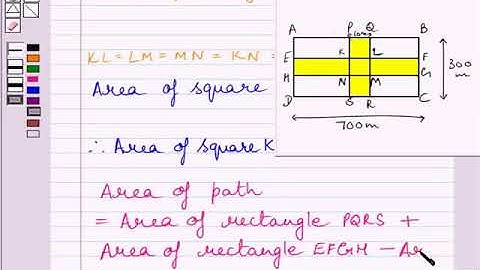 KL = LM = MN = KN =
Area of square
∴ Area of square K
Area of path
= Area of rectangle PQRS +
Area of rectangle EFGH – Ar
A P Q B
10m
E K L F
H N M G
D S R C
300
m
700m